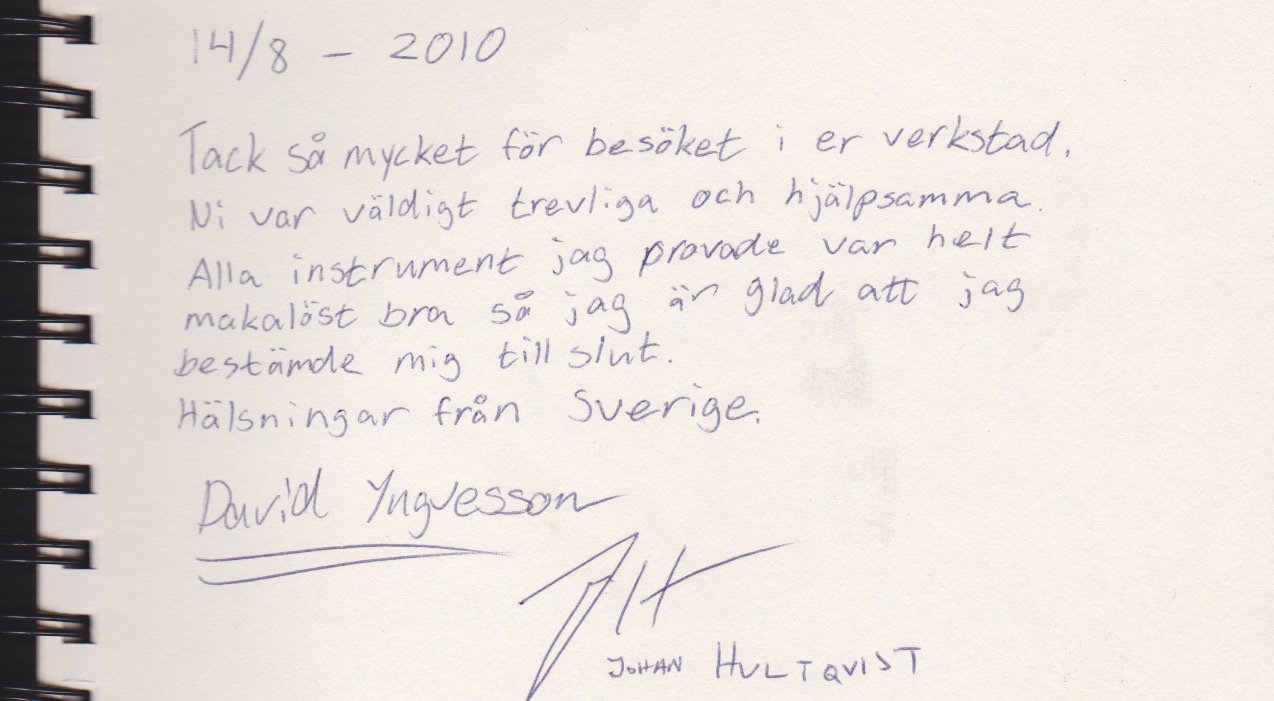 14/8 - 2010
Tack så mycket för besöket i er verkstad.
Ni var väldigt trevliga och hjälpsamma.
Alla instrument jag provade var helt
makalöst bra så jag är glad att jag
bestämde mig till slut.
Hälsningar från Sverige.
David Yngvesson
JH
JOHAN HULTQVIST